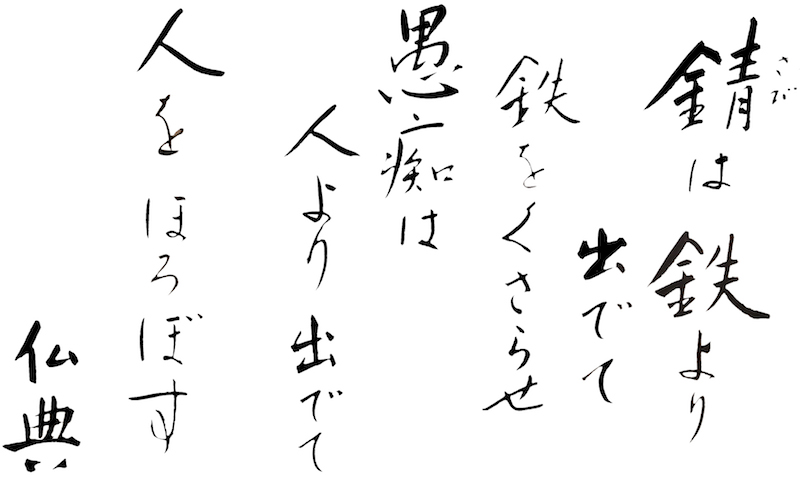 錆は鉄より
さび
出でて
鉄をくさらせ
愚痴は
人より出でて
人をほろぼす
仏典